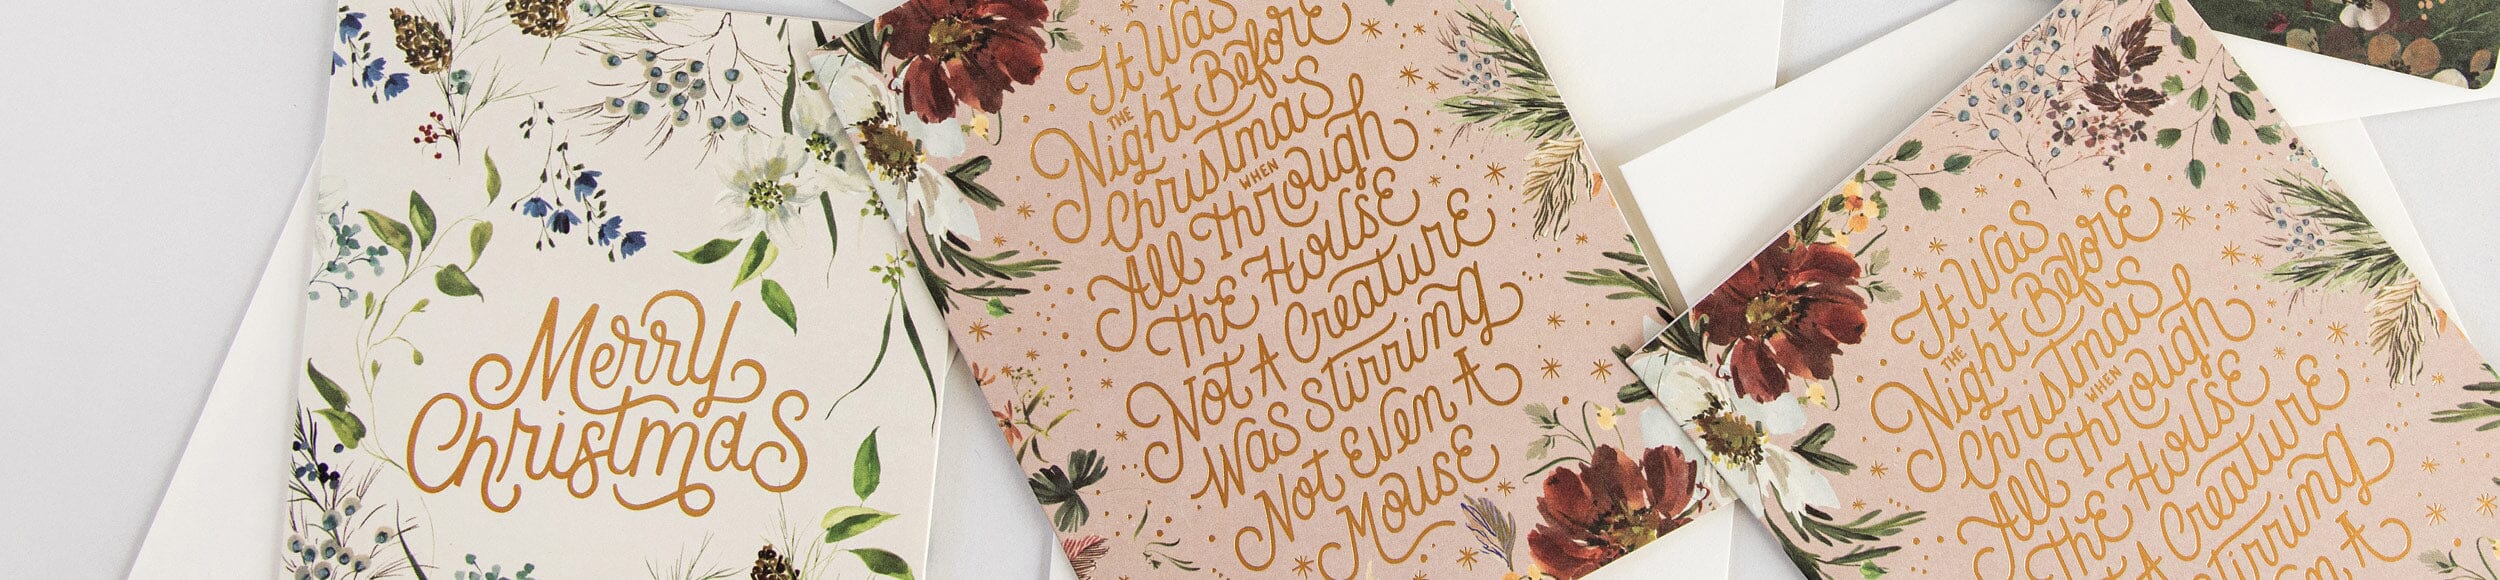 Merry
Christmas
It Was
THE
Night Before
Christmas
WHEN
All Through
The House
Not A Creature
Was Stirring
Not Even A
Mouse
It Was
THE
Night Before
Christmas
WHEN
All Through
The House
A Creature
Stirring
Even A